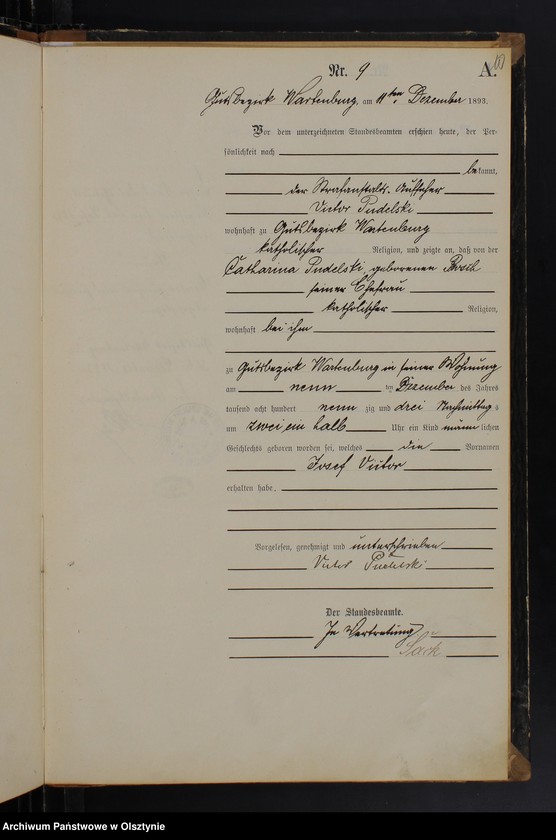 Nr. 9
A.
Gutsbezirk Wartenburg, am 11ten Dezember 1893.
Vor dem unterzeichneten Standesbeamten erschien heute, der Per-
sönlichkeit nach
bekannt,
der Strafanstalts-Aufseher
Victor Pudelski
wohnhaft zu Gutsbezirk Wartenburg
katholischer Religion, und zeigte an, daß von der
Catharina Pudelski, geborenen
seiner Ehefrau
katholischer Religion,
wohnhaft bei ihm
zu Gutsbezirk Wartenburg in seiner Wohnung
am neun ten Dezember des Jahres
tausend acht hundert neun zig und drei Nachmittag s
um zwei ein halb Uhr ein Kind männ lichen
Geschlechts geboren worden sei, welches die Vornamen
Josef Victor
erhalten habe.
Vorgelesen, genehmigt und unterschrieben
Victor Pudelski
Der Standesbeamte.
In Vertretung
Sack
Archiwum Państwowe w Olsztynie